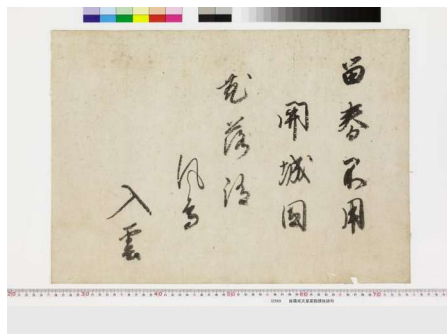 留春不用
関城固
花落随
風鳥
入雲